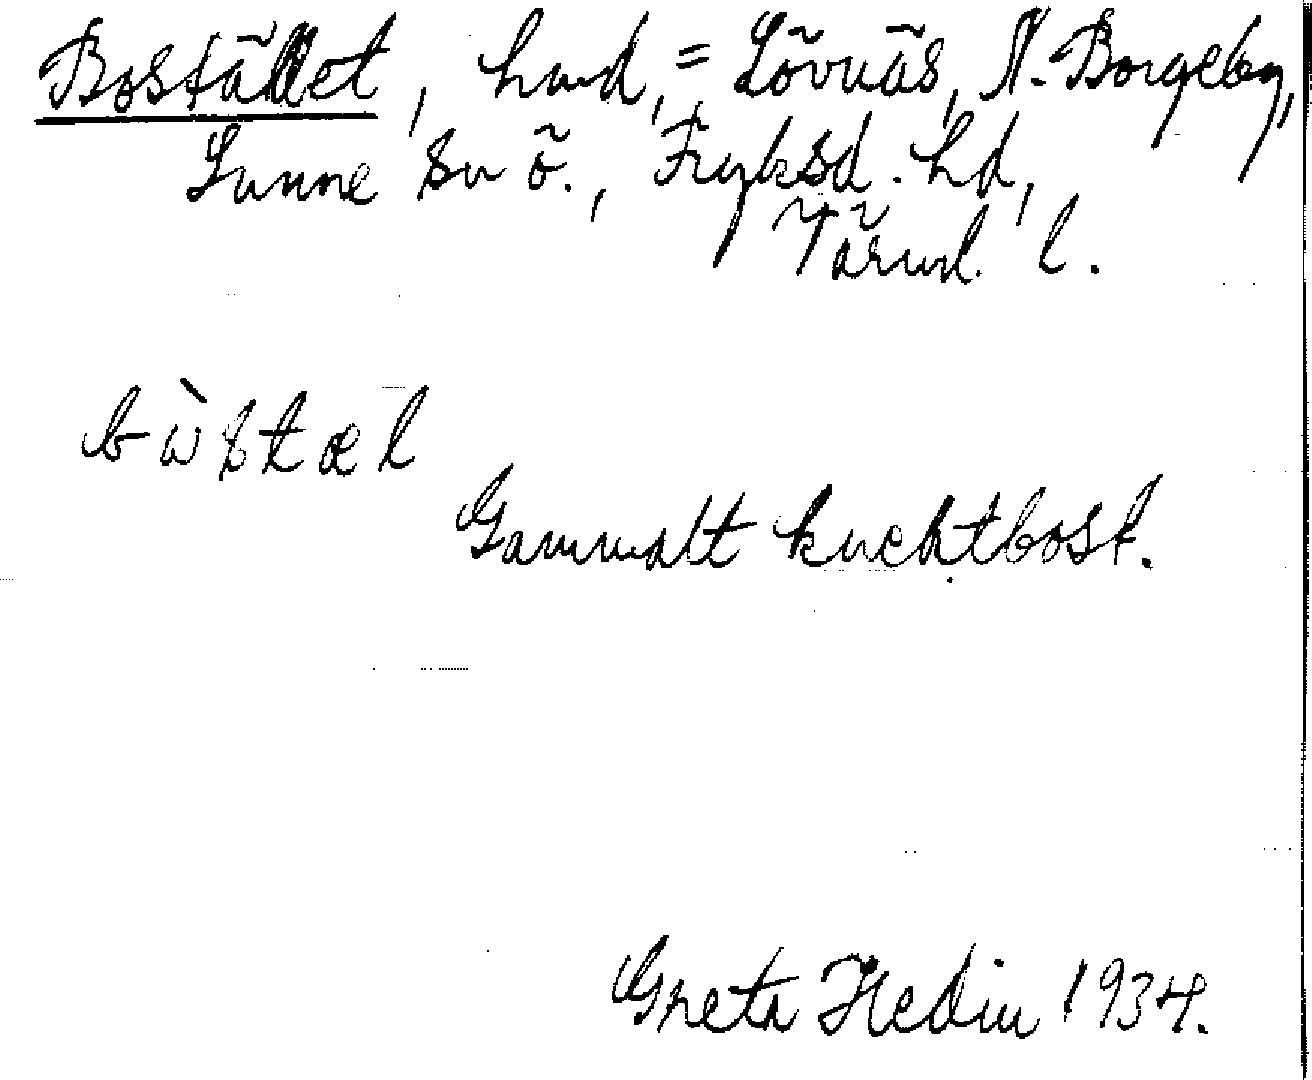 Bostället, hmd, = Lövnäs, N. Borgeby,
Sunne sn ö., Fryksd. hd,
Värml. l.
bὼstæl
Gammalt knektbost.
Greta Hedin 1934.